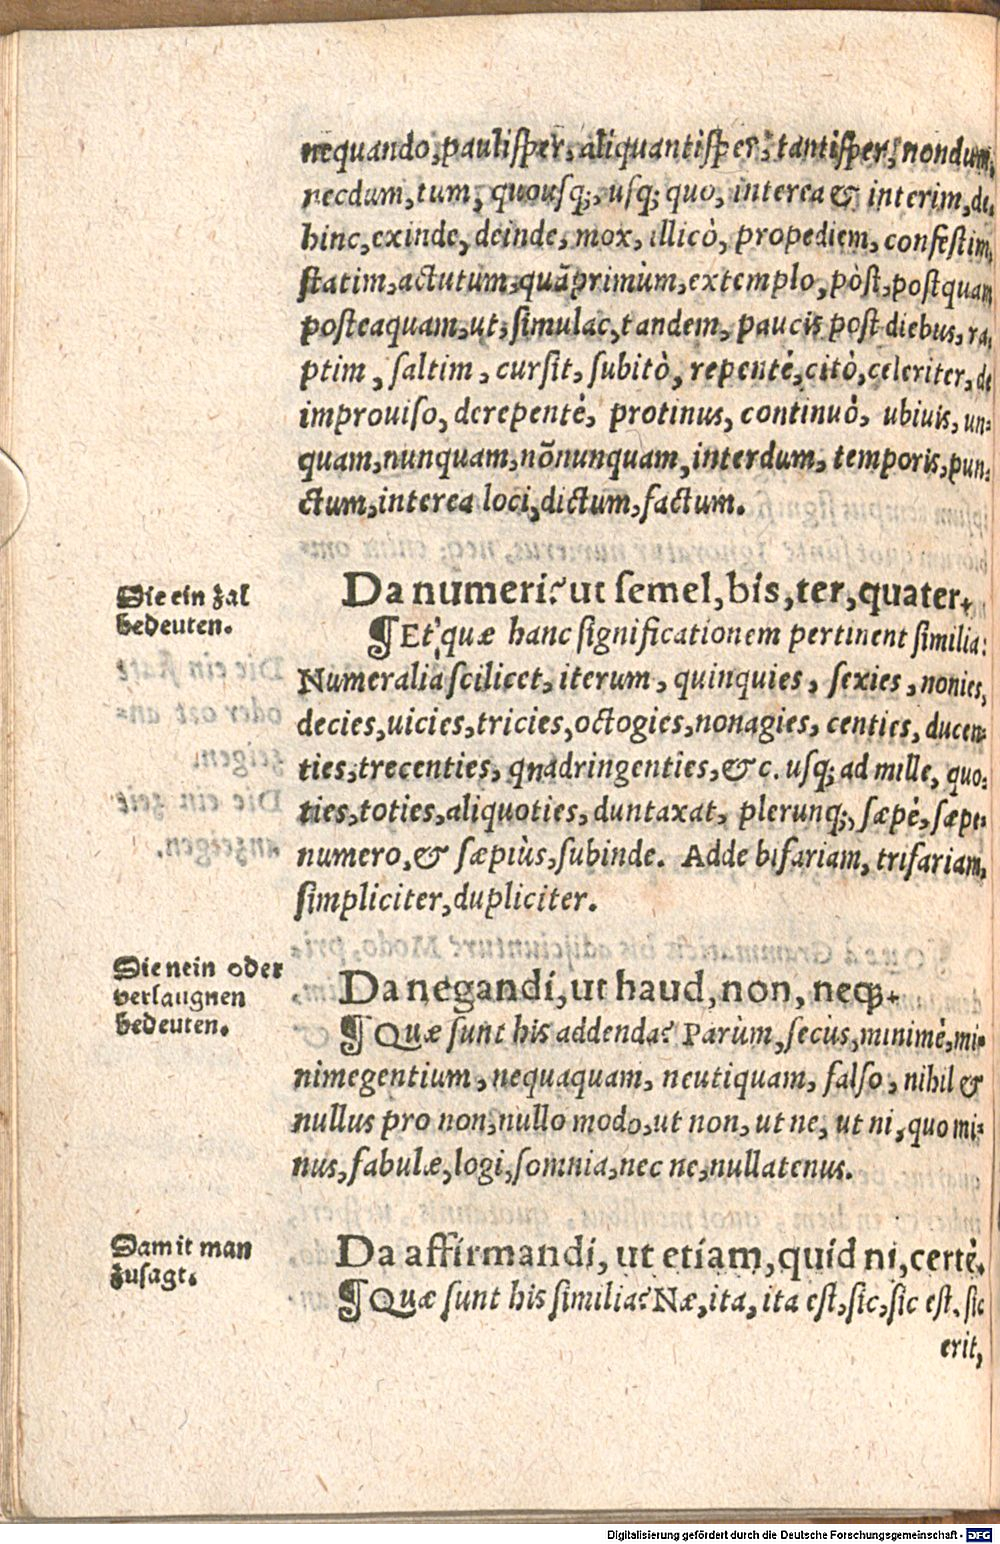 nequando, paulisper, aliquantisper, tantisper, nondum,
necdum, tum, quousq;, usq; quo, interea & interim, de,
hinc, exinde, deinde, mox, illicò, propediem, confestim,
statim, actutum, quãprimùm, extemplo, pòst, postquam
posteaquam, ut, simulac, tandem, paucis post diebus, ra,
ptim, saltim, cursit, subitò, repentè, citò, celeriter, de
improuiso, derepentè, protinus, continuò, ubiuis, un-
quam, nunquam, nõnunquam, interdum, temporis, pun-
ctum, interea loci, dictum, factum.
Die ein zal
bedeuten.
Da numeri? ut semel, bis, ter, quater.
¶ Et quæ hanc significationem pertinent similia:
Numeralia scilicet, iterum, quinquies, sexies, nonies,
decies, uicies, tricies, octogies, nonagies, centies, ducen-
ties, trecenties, quadringenties, &c. usq; ad mille, quo-
ties, toties, aliquoties, duntaxat, plerunq;, sæpè, sæpe-
numero, & sæpiùs, subinde. Adde bifariam, trifariam,
simpliciter, dupliciter.
Die nein oder
verlaugnen
bedeuten.
Da negandi, ut haud, non, neq;.
¶ Quæ sunt his addenda? Parùm, secùs, minimè, mi-
nimegentium, nequaquam, neutiquam, falso, nihil &
nullus pro non, nullo modo, ut non, ut ne, ut ni, quo mi-
nus, fabulæ, logi, somnia, nec ne, nullatenus.
Damit man
zusagt.
Da affirmandi, ut etiam, quid ni, certè.
¶ Quæ sunt his similia? Næ, ita, ita est, sic, sic est, sic
erit,
Digitalisierung gefördert durch die Deutsche Forschungsgemeinschaft - DFG